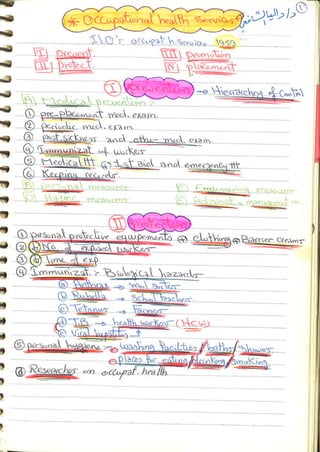 * Occupational health Services
د/داليا الشافعي
ILO's occupat. h. services 1959
I prevent III promotion
II protect IV placement
I prevention → Hierarchy of Control
A) Medical prevention :-
① pre-placement med. exam.
② periodic med. exam.
③ post sickness and other med. exam
④ Immunizat. of worker
⑤ Medical ttt → 1st aid and emergency ttt
⑥ Keeping records.
B) Personal measures C) Engineering measures
D) Hygiene measures E) Administ. & management m.
II protection
① personal protective equipements → clothing → Barrier creams
② ↓ No. of exposed worker
③ ↓ Time of exp
④ Immunizat. :- Biological hazards
ⓐ Anthrax → wool sorter
ⓑ Rubella → School teacher
ⓒ Tetanus → Farmer
ⓓ TB → health worker (HCW)
ⓔ viral hepatitis →
⑤ personal hygiene → washing facilities / baths / showers
→ places for eating / drinking / smoking
ⓓ Researches on occupat. health